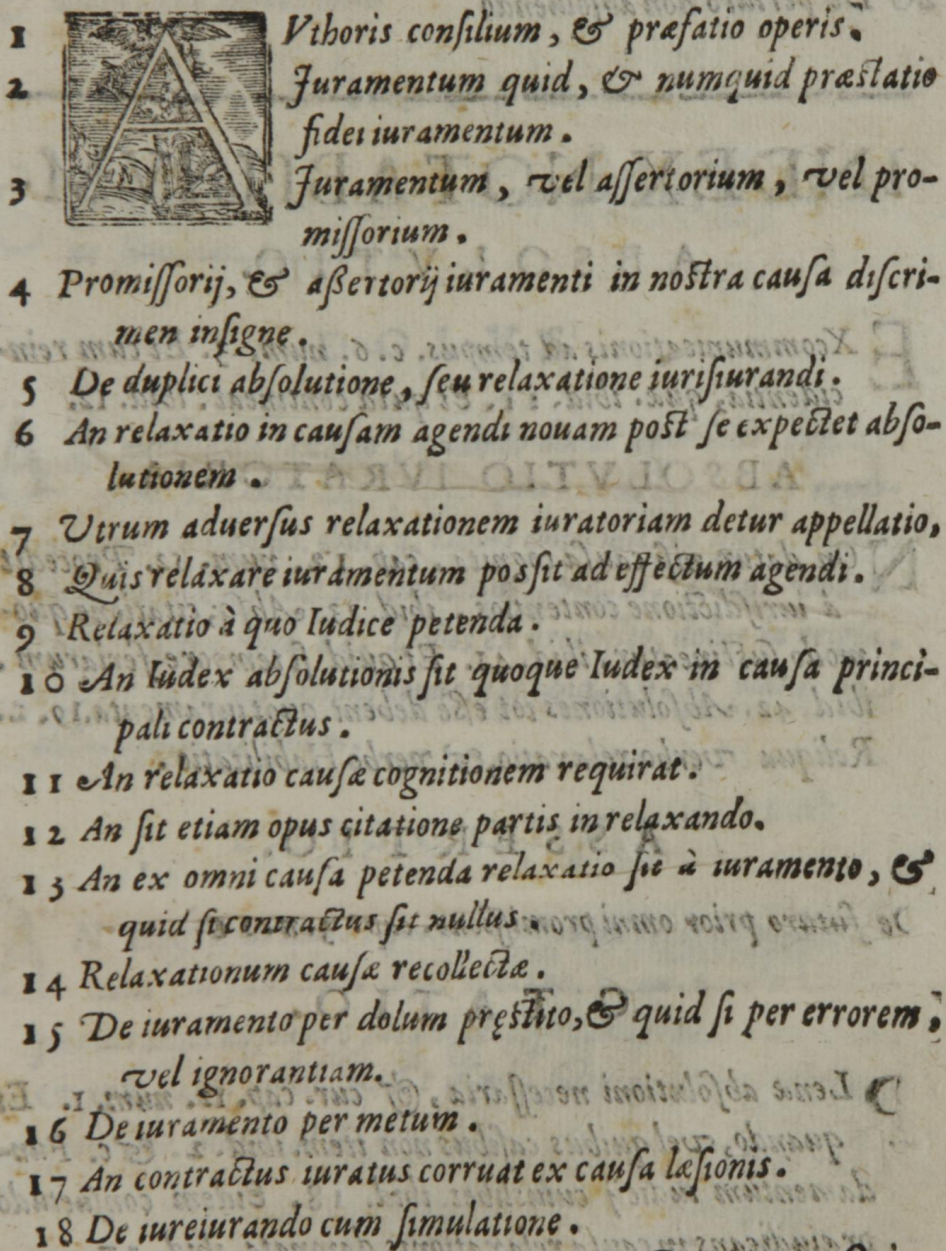 1 AVthoris conſilium, & præfatio operis.
2 Juramentum quid, & numquid præſtatio
fidei iuramentum.
3 Juramentum, vel aſſertorium, vel pro-
miſſorium.
4 Promiſſorij, & aßertorij iuramenti in noſtra cauſa diſcri-
men inſigne.
5 De duplici abſolutione, ſeu relaxatione iuriſiurandi.
6 An relaxatio in cauſam agendi nouam poſt ſe expectet abſo-
lutionem.
7 Utrum aduerſus relaxationem iuratoriam detur appellatio,
8 Quis relaxare iuramentum posſit ad effectum agendi.
9 Relaxatio à quo Iudice petenda.
10 An Iudex abſolutionis ſit quoque Iudex in cauſa princi-
pali contractus.
11 An relaxatio cauſæ cognitionem requirat.
12 An ſit etiam opus citatione partis in relaxando.
13 An ex omni cauſa petenda relaxatio ſit à iuramento, &
quid ſi contractus ſit nullus.
14 Relaxationum cauſæ recollectæ.
15 De iuramento per dolum pręſtito, & quid ſi per errorem,
vel ignorantiam.
16 De iuramento per metum.
17 An contractus iuratus corruat ex cauſa læſionis.
18 De iureiurando cum ſimulatione.